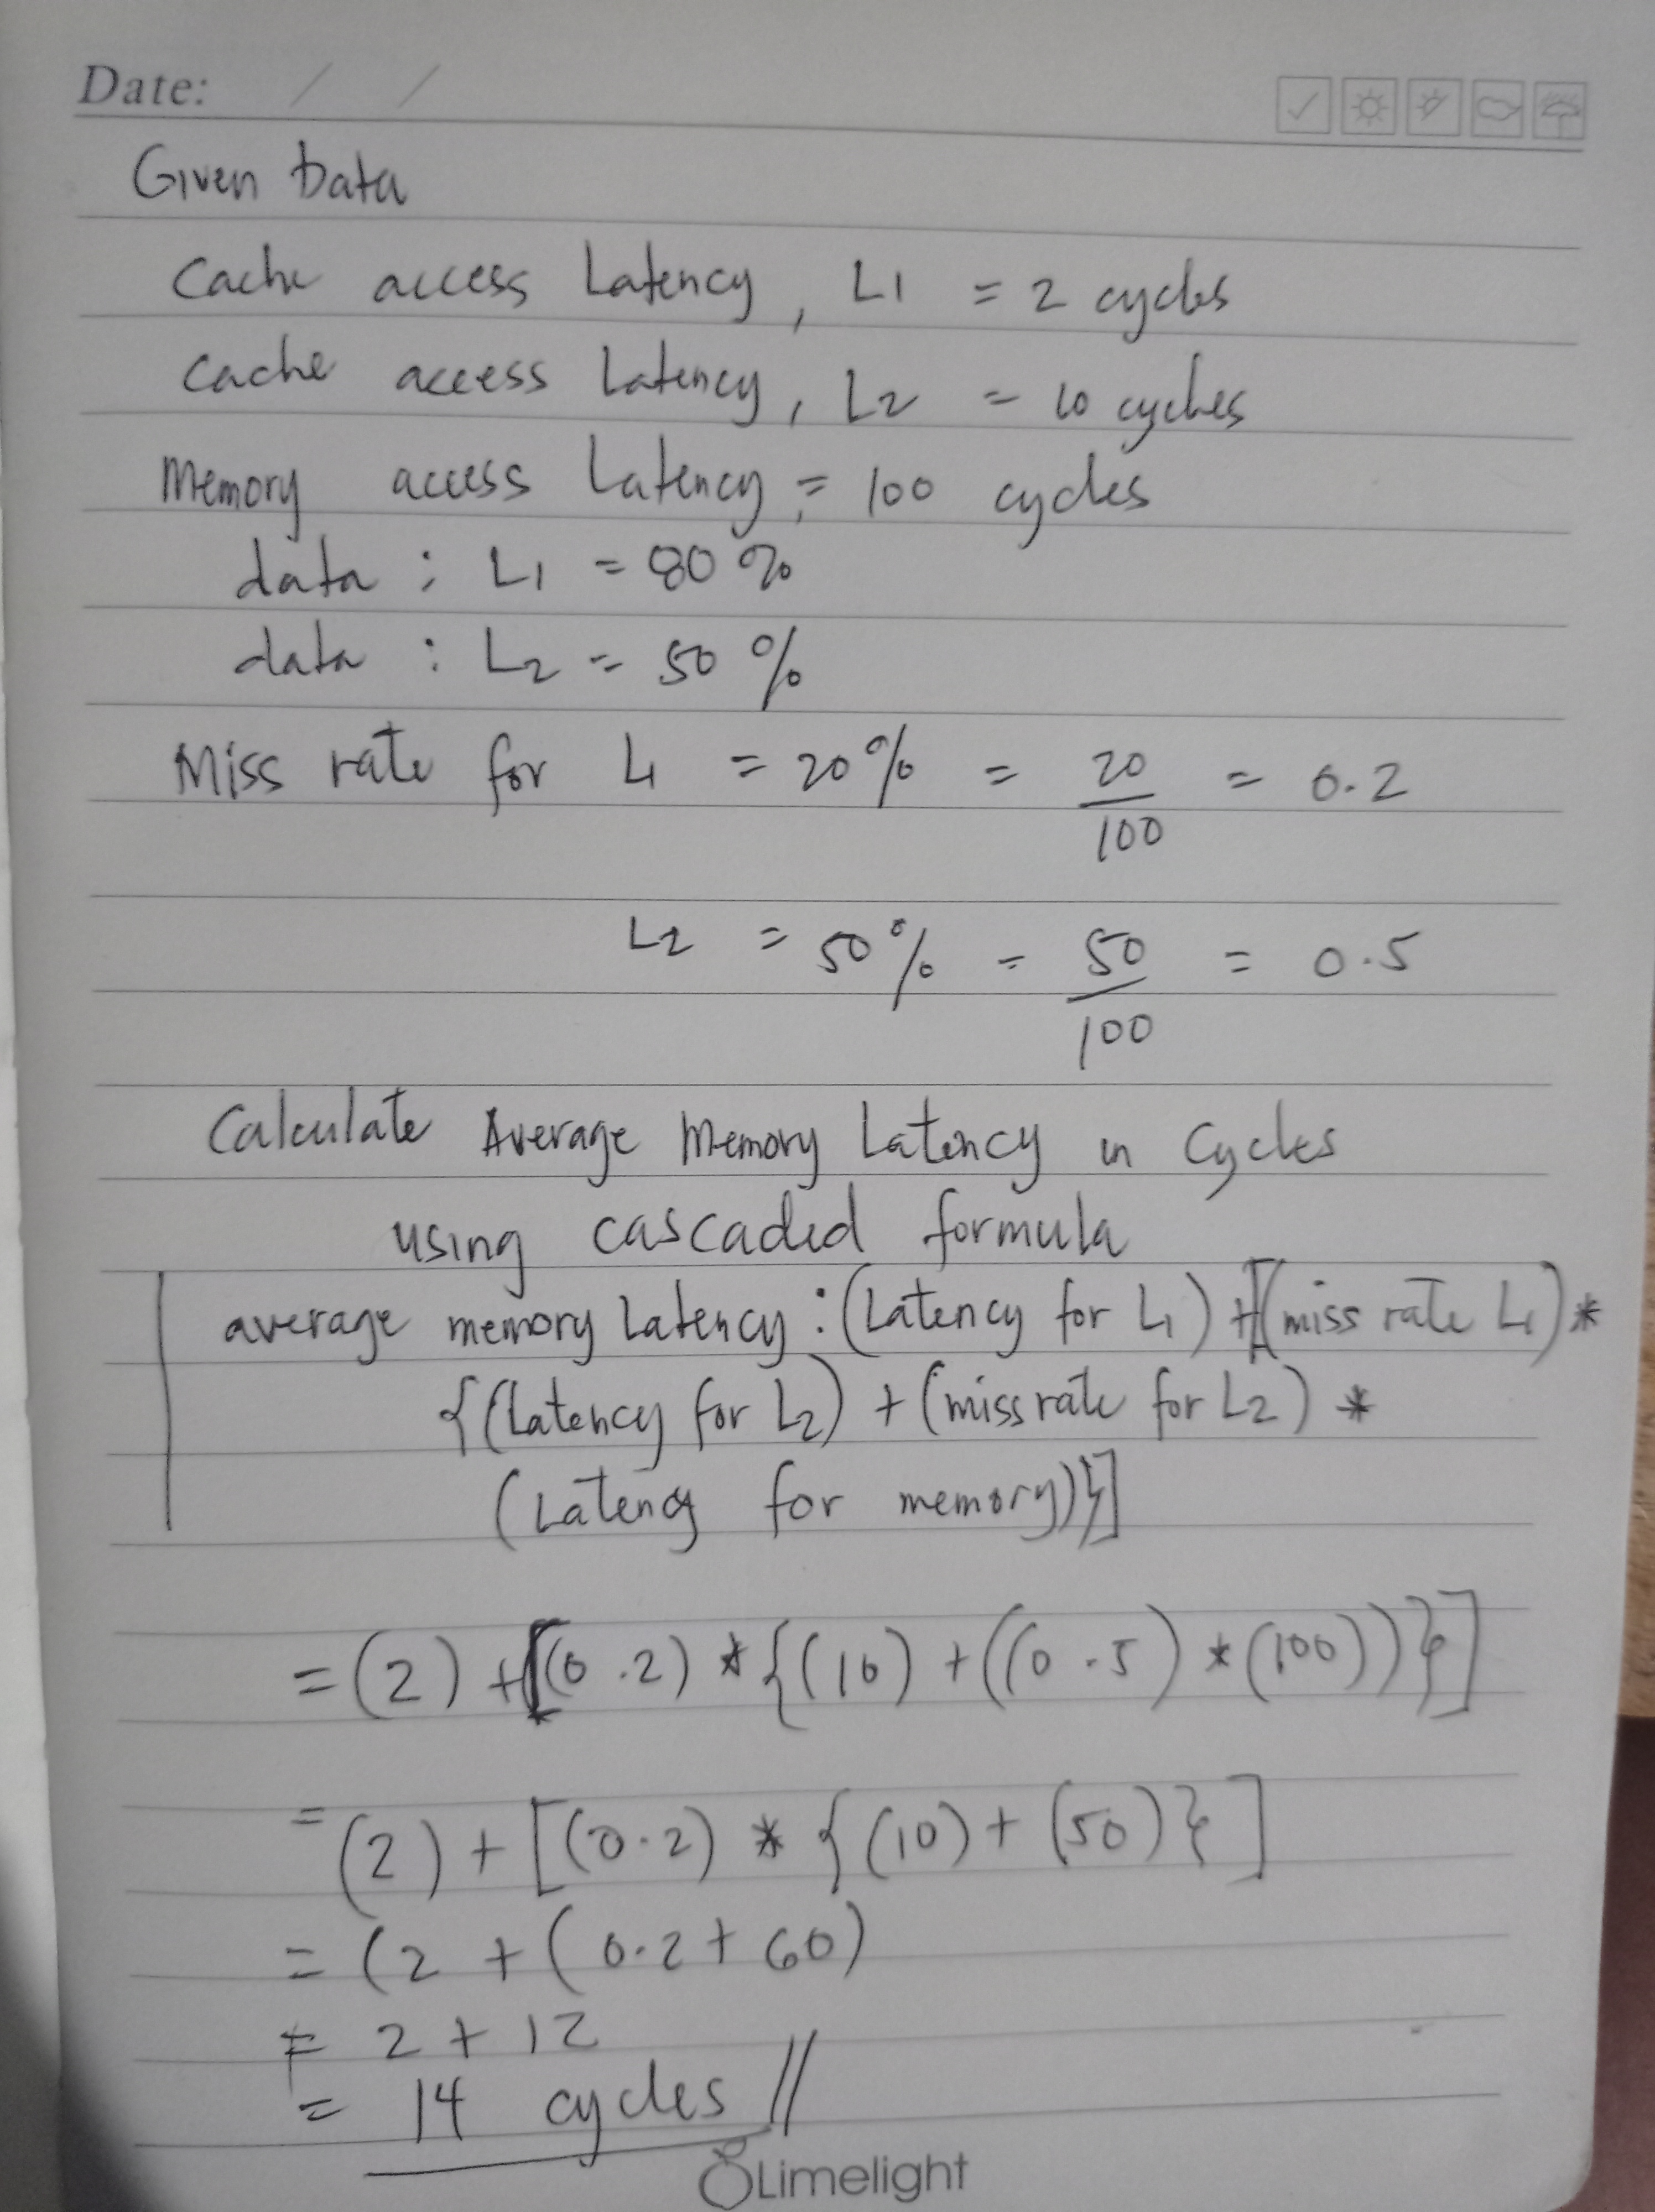 Date: / /
Given Data
Cache access Latency, L1 = 2 cycles
Cache access Latency, L2 = 10 cycles
Memory access Latency = 100 cycles
data : L1 = 80 %
data : L2 = 50 %
Miss rate for L1 = 20% = 20/100 = 0.2
L2 = 50% = 50/100 = 0.5
Calculate Average Memory Latency in Cycles
using cascaded formula
average memory Latency : (Latency for L1) + [(miss rate L1) *
{(Latency for L2) + (miss rate for L2) *
(Latency for memory)}]
= (2) + [(0.2) * {(10) + ((0.5) * (100))}]
= (2) + [(0.2) * {(10) + (50)}]
= (2 + (0.2 + 60)
= 2 + 12
= 14 cycles //
Limelight